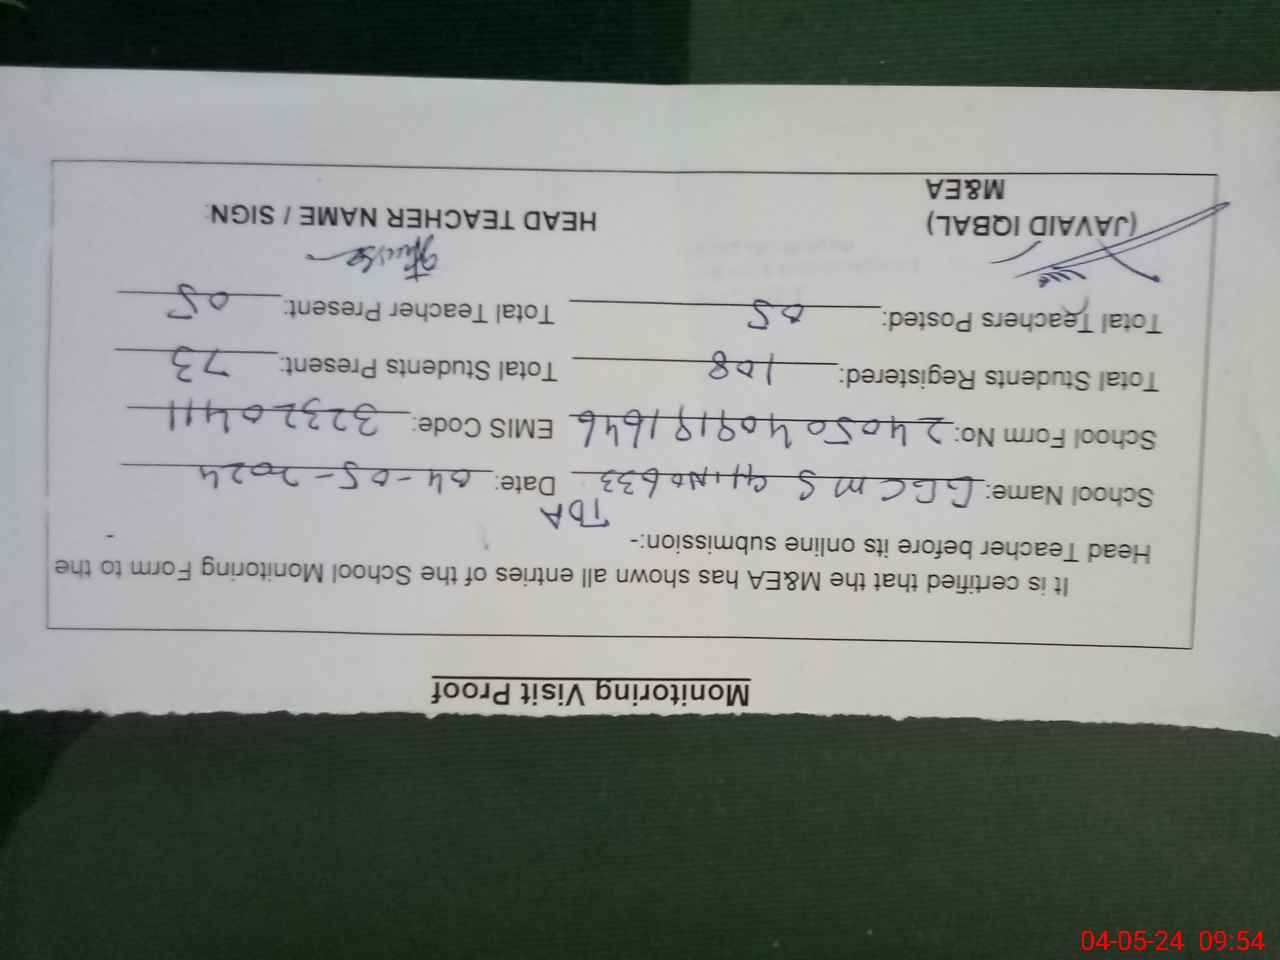 Monitoring Visit Proof
It is certified that the M&EA has shown all entries of the School Monitoring Form to the
Head Teacher before its online submission:-
TDA
School Name: GGCMS CH,No 633 Date: 04-05-2024
School Form No: 24050409191646 EMIS Code: 32320411
Total Students Registered: 108 Total Students Present: 73
Total Teachers Posted: 05 Total Teacher Present: 05
(JAVAID IQBAL) HEAD TEACHER NAME / SIGN:
M&EA
04-05-24 09:54